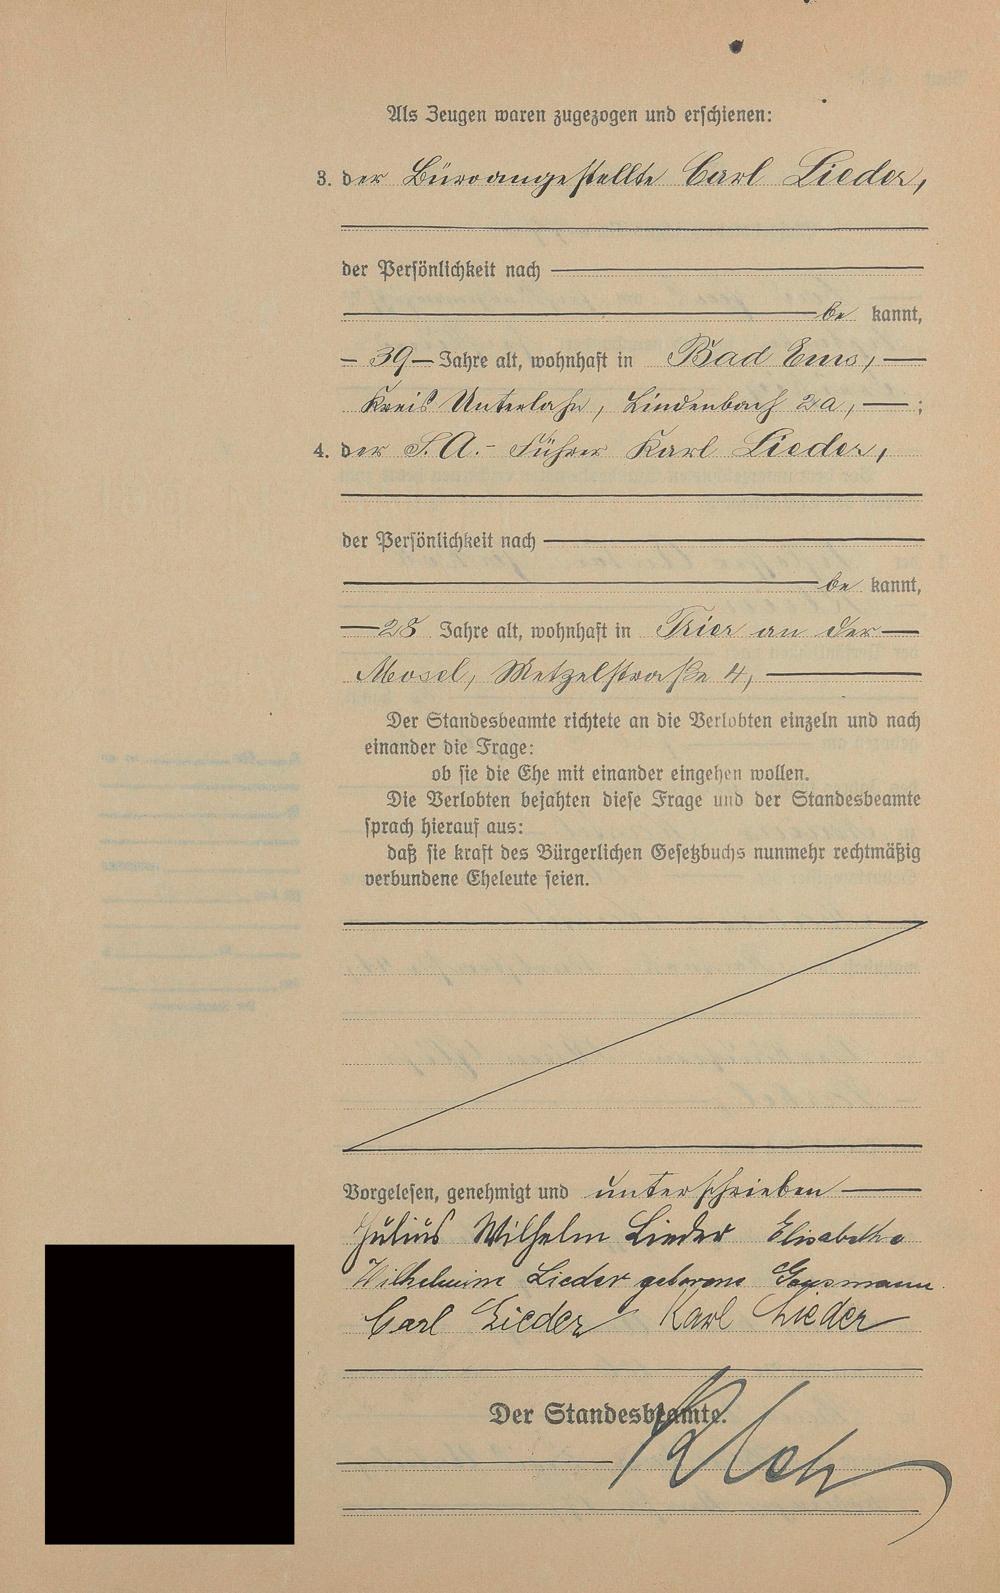 Als Zeugen waren zugezogen und erschienen:
3. der Büroangestellte Carl Lieder,
der Persönlichkeit nach
be kannt,
39 Jahre alt, wohnhaft in Bad Ems,
Kreis Unterlahn, Lindenbach 2a, ;
4. der S.A.- Führer Karl Lieder,
der Persönlichkeit nach
be kannt,
28 Jahre alt, wohnhaft in Trier an der
Mosel, Metzelstraße 4,
Der Standesbeamte richtete an die Verlobten einzeln und nach
einander die Frage:
ob sie die Ehe mit einander eingehen wollen.
Die Verlobten bejahten diese Frage und der Standesbeamte
sprach hierauf aus:
daß sie kraft des Bürgerlichen Gesetzbuchs nunmehr rechtmäßig
verbundene Eheleute seien.
Vorgelesen, genehmigt und unterschrieben
Julius Wilhelm Lieder Elisabethe
Wilhelmine Lieder geborene
Carl Lieder Karl Lieder
Der Standesbeamte.